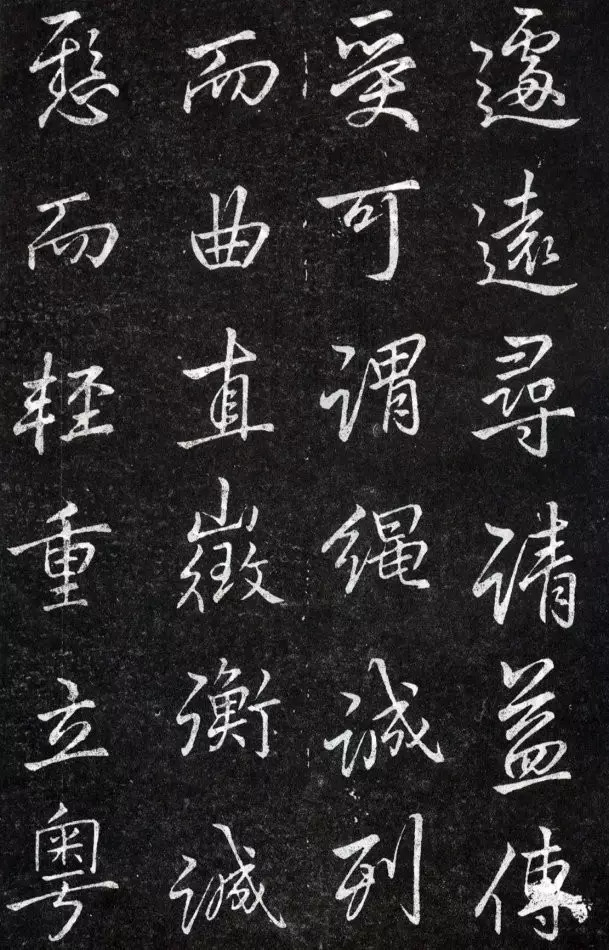 遽遠尋請益傳
受可謂繩誠列
而曲直徵衡誠
懸而輕重立粵